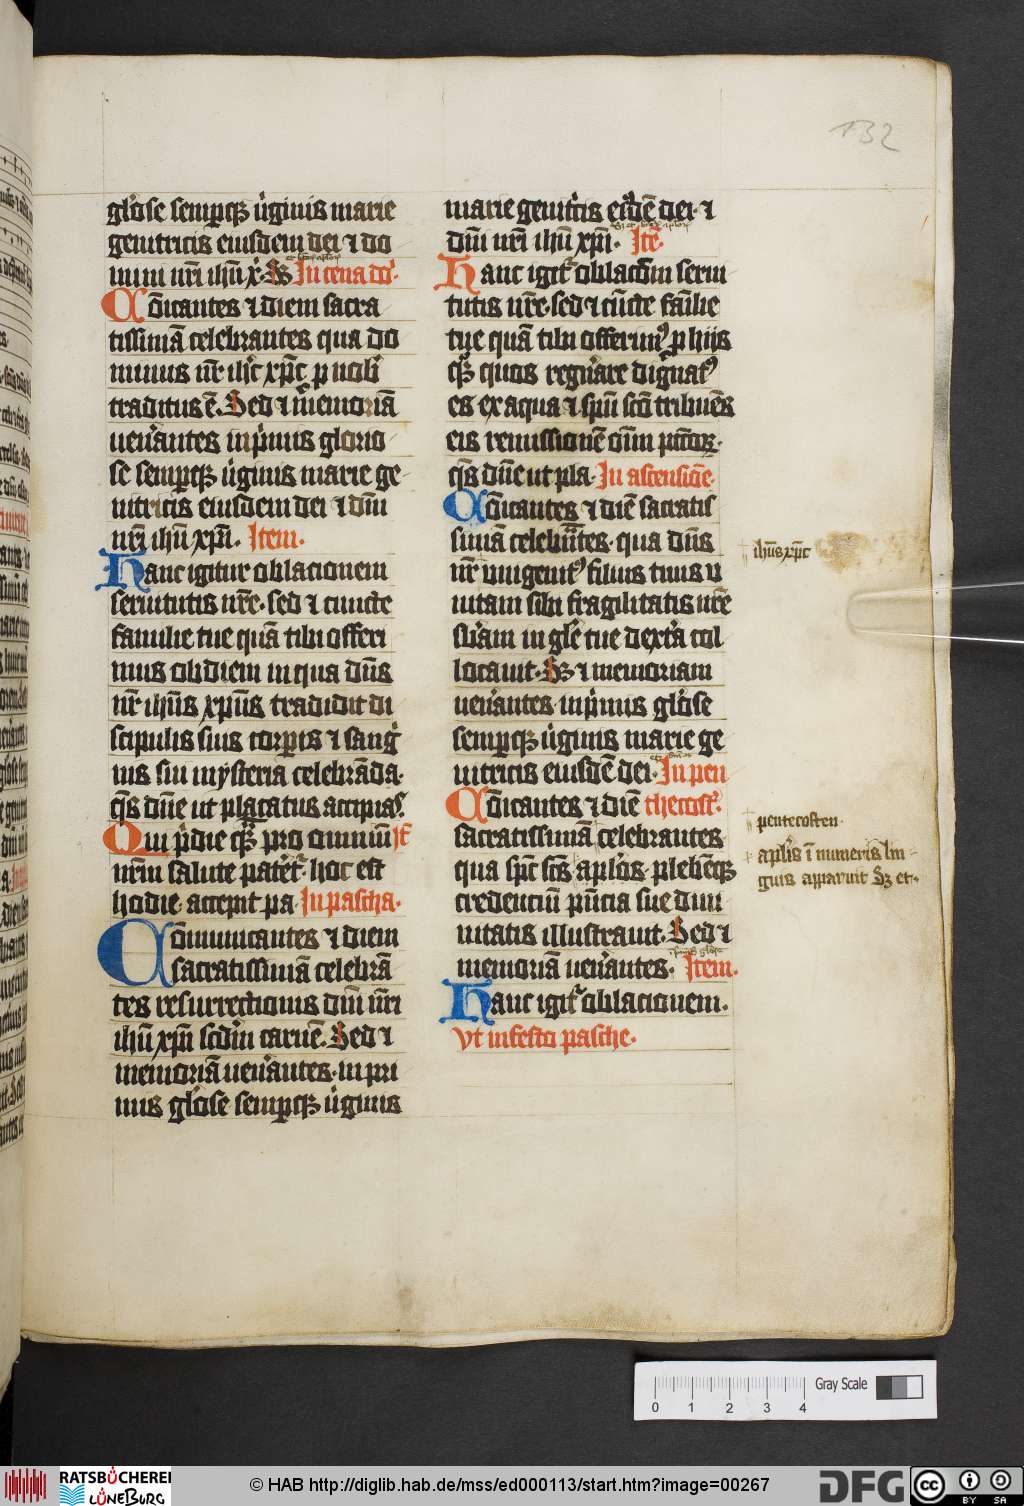 132
glose semperque virginis marie
genitricis eiusdem dei ⁊ do
mini nr̄i ihū x̄. S In cena do.
Cōicantes ⁊ diem sacra
tissimā celebrantes qua do
minus nr̄ ih̄c xp̄c p nob
traditus ē. Sed ⁊ memoriā
uenˀantes inpˀmis glorio
se semperque v̓ginis marie ge
nitricis eiusdem dei ⁊ dn̄i
nr̄i ihū xp̄i. Item.
Hanc igitur oblacionem
seruitutis nr̄e. sed ⁊ cuncte
familie tue quā tibi offeri
mus ob diem in qua dn̄s
nr̄ ihūs xp̄us tradidit di
scipulis suis corp̱is ⁊ sangˀ
nis sui mysteria celebrāda.
q̄s dn̄e ut placatus accipias.
Qui pˀdie qȝ pro omniū It̄
nr̄m salute patet̓. hoc est
hodie. accepit pa. In pascha.
Cōmunicantes ⁊ diem
sacratissimā celebrā
tes resurrectionis dn̄i nr̄i
ihū xp̄i scd̓m carnē. Sed ⁊
memoriā uenˀantes. in pri
mis glōse semperque v̓ginis
marie genitˀcis eiˀdē dei. ⁊
dn̄i nr̄i ihū xp̄i. Itē.
Hanc igit̓ oblacōm serui
tutis nr̄e. sed ⁊ cūcte famˀlie
tue quā tibi offerimꝰ p hijs
qȝ quos regnˀare dignatꝰ
es ex aqua ⁊ sp̄u scō tribuēs
eis remissionē oīm pctōꝝ.
q̄s dn̄e ut pla. In ascensiōe.
Cōicantes ⁊ diē sacratis
simā celebrantes. qua dn̄s
nr̄ vnigenitꝰ filius tuus v
nitam sibi fragilitatis nr̄e
sbˀam in glˀe tue dextˀa col
locauit. S ⁊ memoriam
uenˀantes. in pˀmis glōse
semperque v̓ginis marie ge
nitricis eiusdē dei. In pen
Cōicantes ⁊ diē thecost̓.
sacratissimā celebrantes
qua sp̄c sc̄s apl̓os. plebēqȝ
credenciū pn̄cia sue diui
nitatis illustrauit. Sed ⁊
memoriā uenˀantes. Item.
Hanc igit̓ oblacionem.
vt in festo pasche.
ihūs xp̄c
pentecosten.
apl̓is ī numeris lin
guis apparuit Sȝ et.
0 1 2 3 4
Gray Scale
RATSBÜCHEREI
LÜNEBURG
© HAB http://diglib.hab.de/mss/ed000113/start.htm?image=00267
DFG
cc BY SA